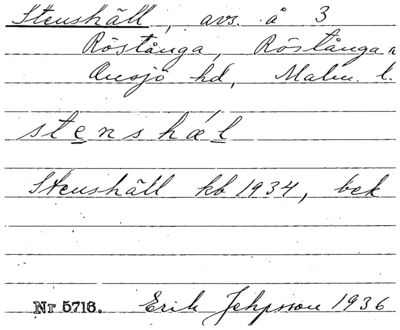 Stenshäll, avs. å 3
Röstånga, Röstånga s
Onsjö hd, Malm. l.
stenshæl
Stenshäll kb 1934, bek
Nr 5716. Erik Jeppsson 1936